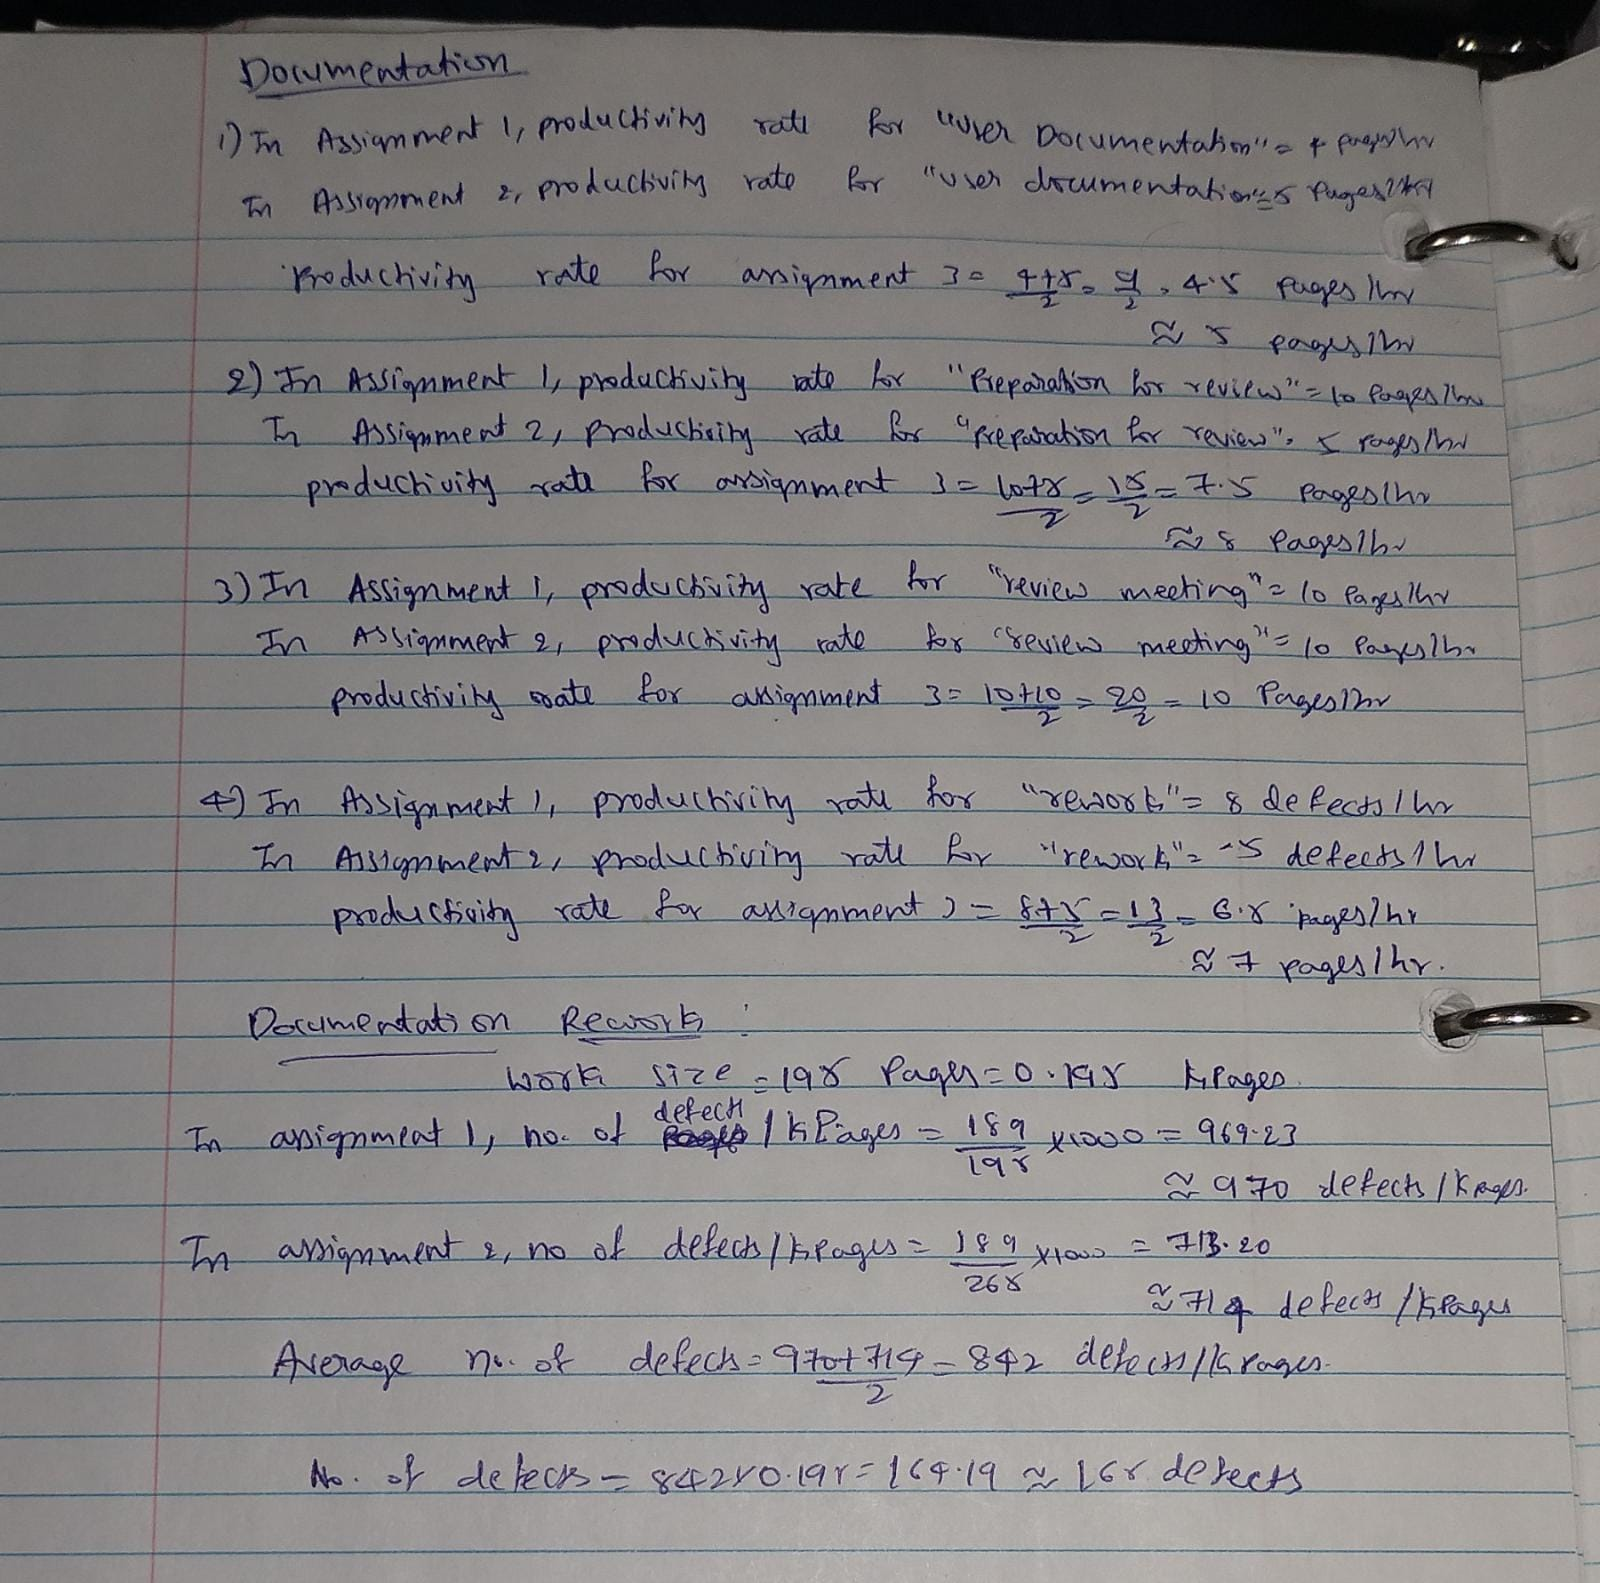 Documentation
1) In Assignment 1, productivity rate for "User Documentation" = 4 pages/hr
In Assignment 2, productivity rate for "user documentation" = 5 Pages/hr
Productivity rate for assignment 3 = 4+5/2 = 9/2 = 4.5 pages/hr
≈ 5 pages/hr
2) In Assignment 1, productivity rate for "Preparation for review" = 10 Pages/hr
In Assignment 2, productivity rate for "preparation for review" = 5 pages/hr
productivity rate for assignment 3 = 10+5/2 = 15/2 = 7.5 pages/hr
≈ 8 Pages/hr
3) In Assignment 1, productivity rate for "review meeting" = 10 Pages/hr
In Assignment 2, productivity rate for "review meeting" = 10 Pages/hr
productivity rate for assignment 3 = 10+10/2 = 20/2 = 10 Pages/hr
4) In Assignment 1, productivity rate for "rework" = 8 defects/hr
In Assignment 2, productivity rate for "rework" = 5 defects/hr
productivity rate for assignment 3 = 8+5/2 = 13/2 = 6.5 pages/hr
≈ 7 pages/hr.
Documentation Rework :
Work size = 195 Pages = 0.195 kPages
In assignment 1, no. of defects / kPages = 189/195 x1000 = 969.23
≈ 970 defects / Kpages.
In assignment 2, no of defects / kpages = 189/265 x1000 = 713.20
≈ 714 defects / kpages
Average no. of defects = 970+714/2 = 842 defects/kpages.
No. of defects = 842x0.195 = 164.19 ≈ 165 defects